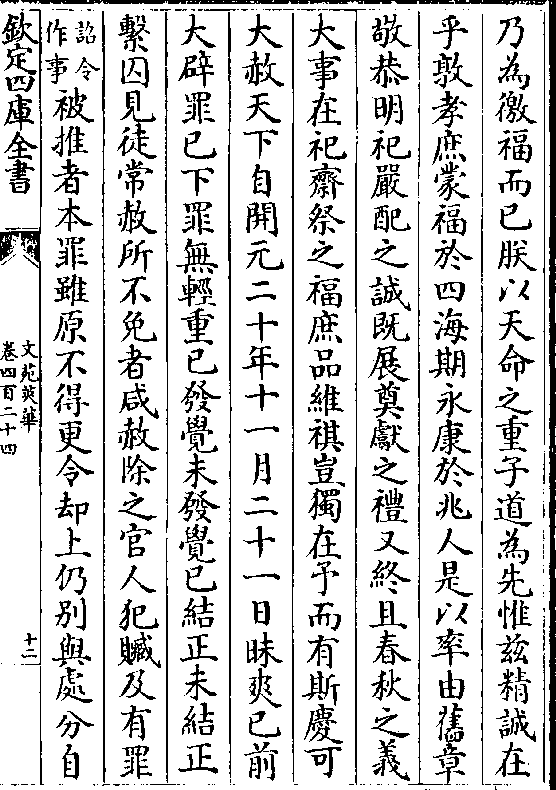 乃為徼福而已朕以天命之重子道為先惟兹精誠在
乎敦孝庶蒙福於四海期永康於兆人是以率由舊章
敬恭明祀嚴配之誠既展奠獻之禮又終且春秋之義
大事在祀齋祭之福庶品維祺豈獨在予而有斯慶可
大赦天下自開元二十年十一月二十一日昧爽已前
大辟罪已下罪無輕重已發覺未發覺已結正未結正
繫囚見徒常赦所不免者咸赦除之官人犯贓及有罪
詔令作事被推者本罪雖原不得更令却上仍别與處分自
欽定四庫全書
文苑英華
卷四百二十四
十二